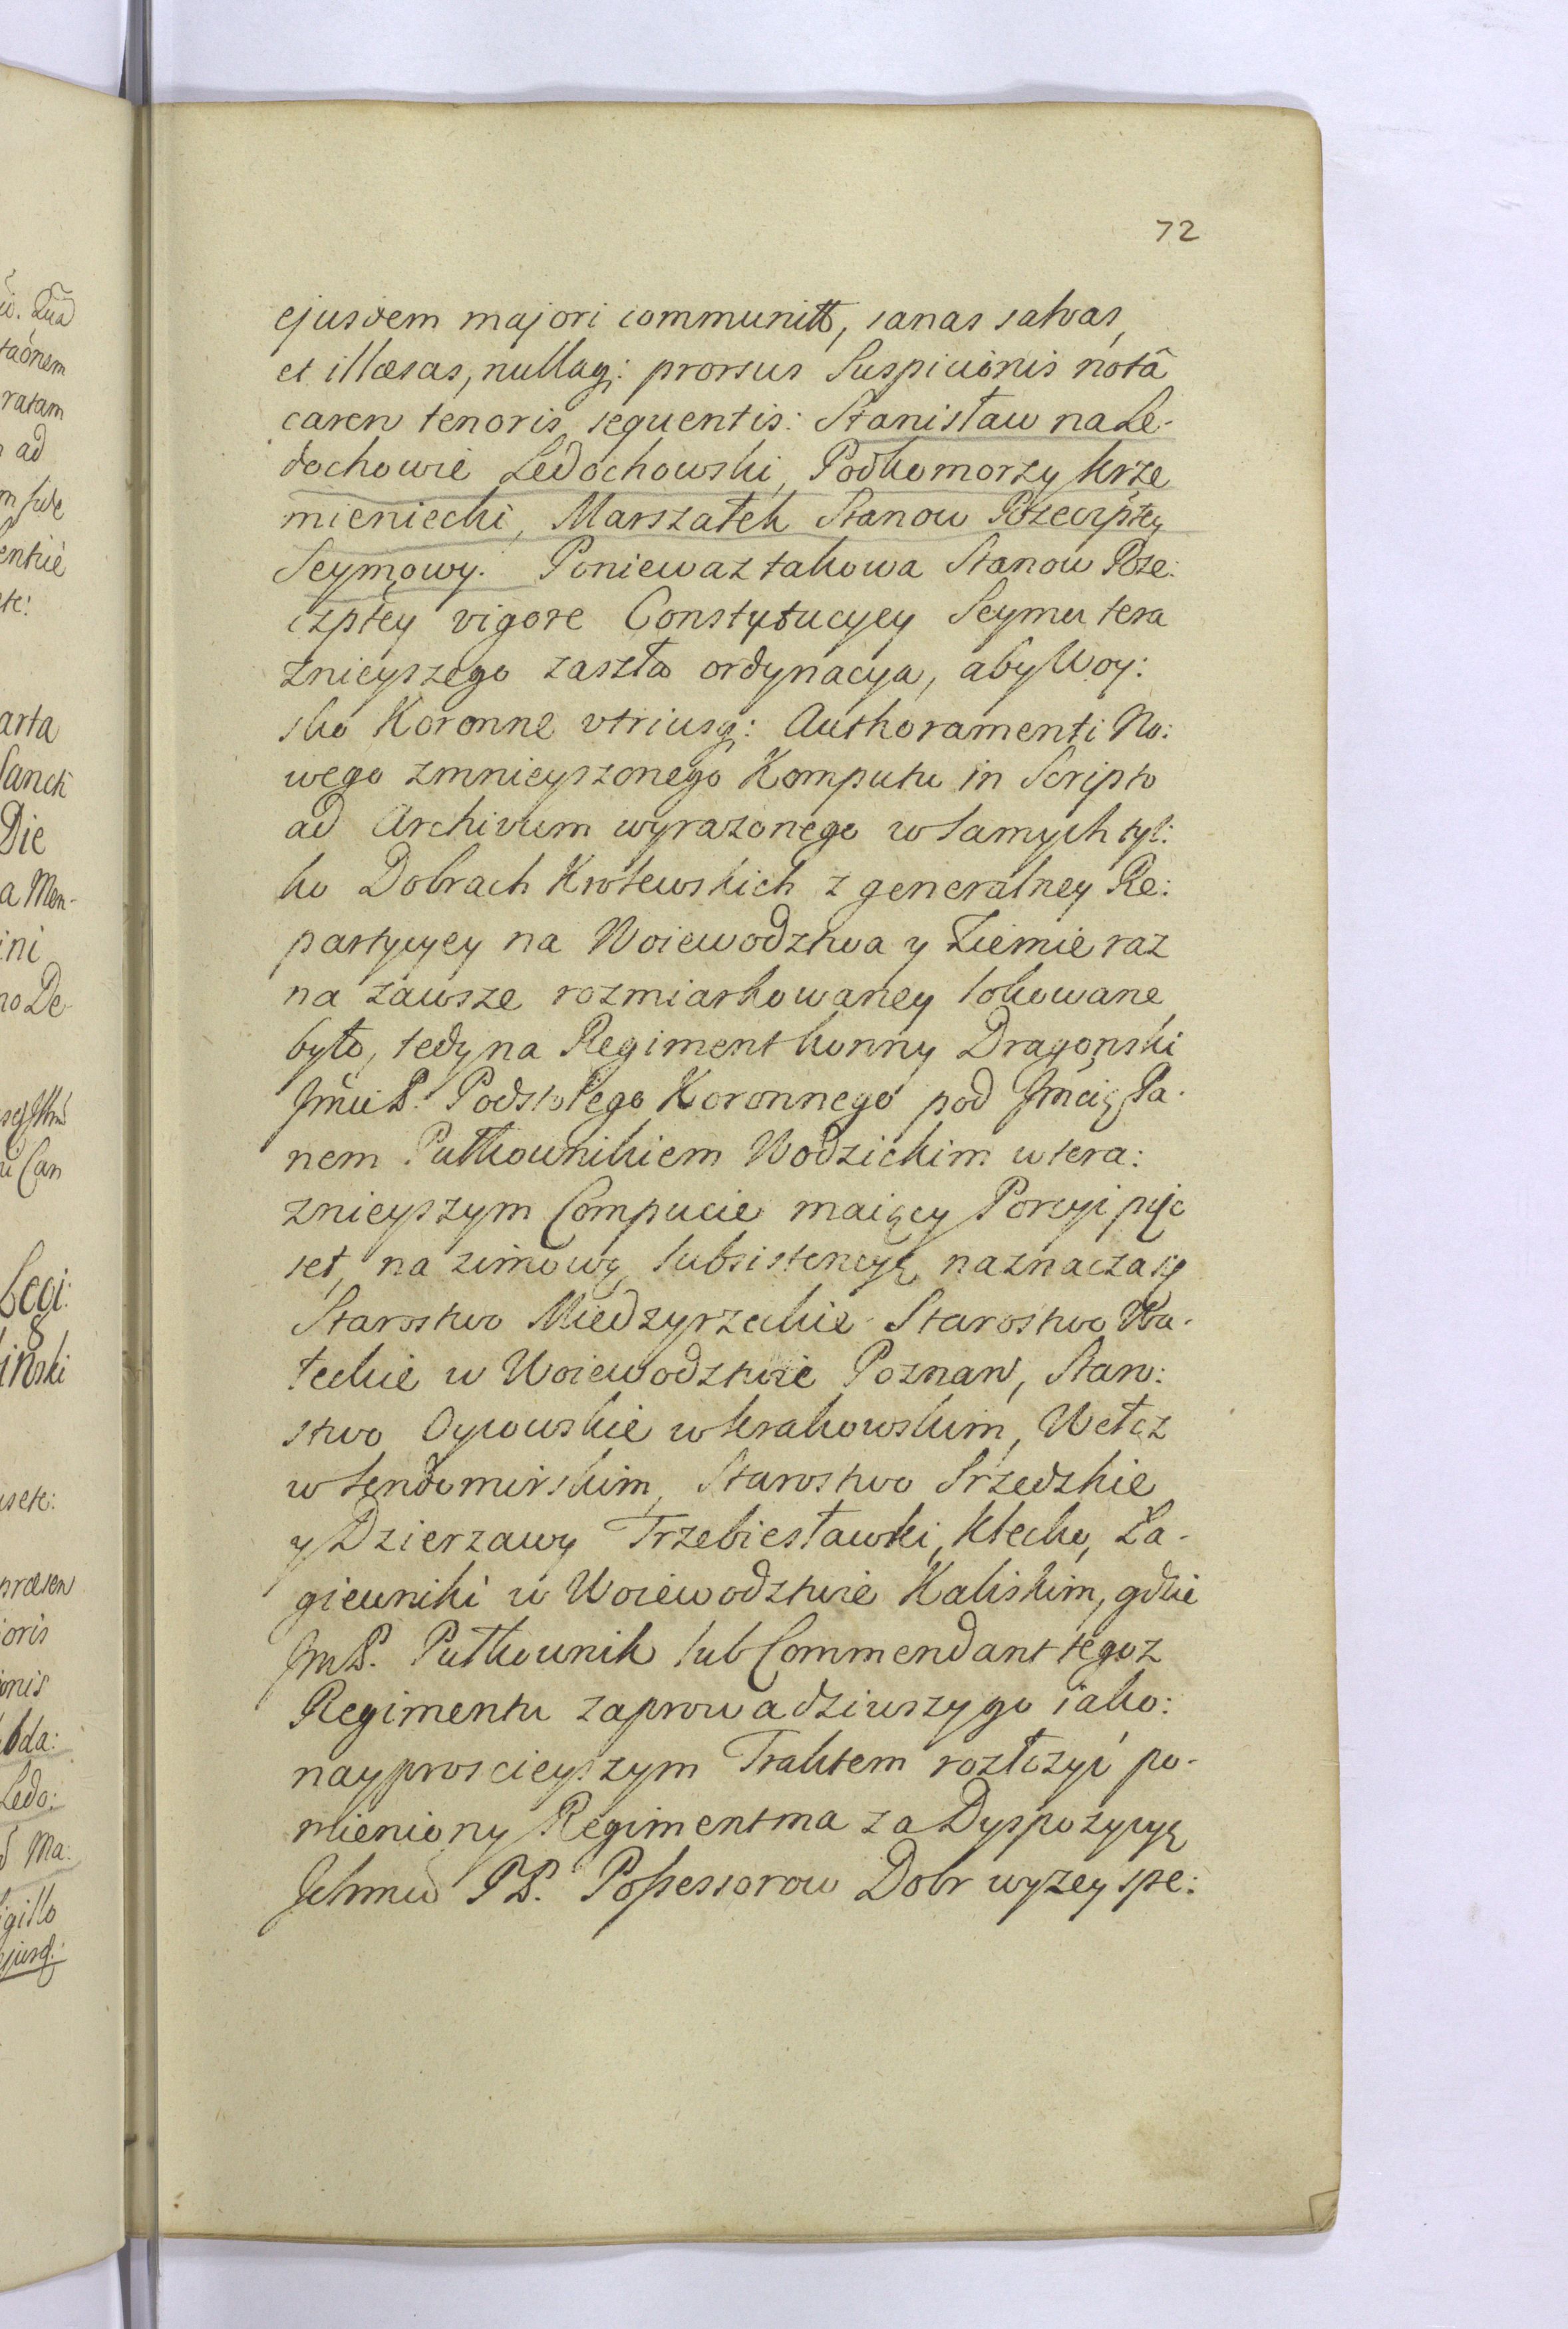 72
ejusdem majori communitt, sanas salvas,
et illæsas, nullaq: prorsus Suspicionis notâ
caren tenoris sequentis: Stanisław na Le-
dochowie Ledochowski, Podkomorzy krze
mieniecki, Marszałek Stanow Rzeczptey
Seymowy. Poniewaz takowa Stanow Rze:
czptey vigore Constytucyey Seymu tera
znieyszego zaszła ordynacya, aby Woy:
sko Koronne utriusq: Authoramenti No:
wego zmnieyszonego Komputu in Scripto
ad Archivum wyrazonego w samych tyl:
ko Dobrach Krolewskich z generalney Re:
partycyey na Woiewodztwa y Ziemie raz
na zawsze rozmiarkowaney lokowane
było, tedy na Regiment konny Dragonski
Jmci P. Podstolego Koronnego pod Jmcią Pa-
nem Pułkownikiem Wodzickim w tera:
znieyszym Compucie maiący Porcyi pięc
set, na zimową subsistencyą naznacza się
Starostwo Miedzyrzeckie Starostwo Wa-
łeckie w Woiewodztwie Poznan, Staro:
stwo Oycowskie w krakowskim, Wełcz
w Sendomirskim, Starostwo Srzedzkie
y Dzierzawy Trzebiesławki, Klecko, Ła-
giewniki w Woiewodztwie Kaliskim, gdzie
Jm P. Pułkownik lub Commendant tegoz
Regimentu zaprowadziwszy go iako:
nayproscieyszym Traktem rozłozyć po-
mieniony Regiment ma za Dyspozycyą
Jchmciow PP. Possessorow Dobr wyzey spe: